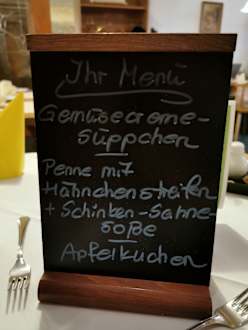 Ihr Menü
Gemüsecreme-
süppchen
Penne mit
Hähnchenstreifen
+ Schinken-Sahne-
soße
Apfelkuchen